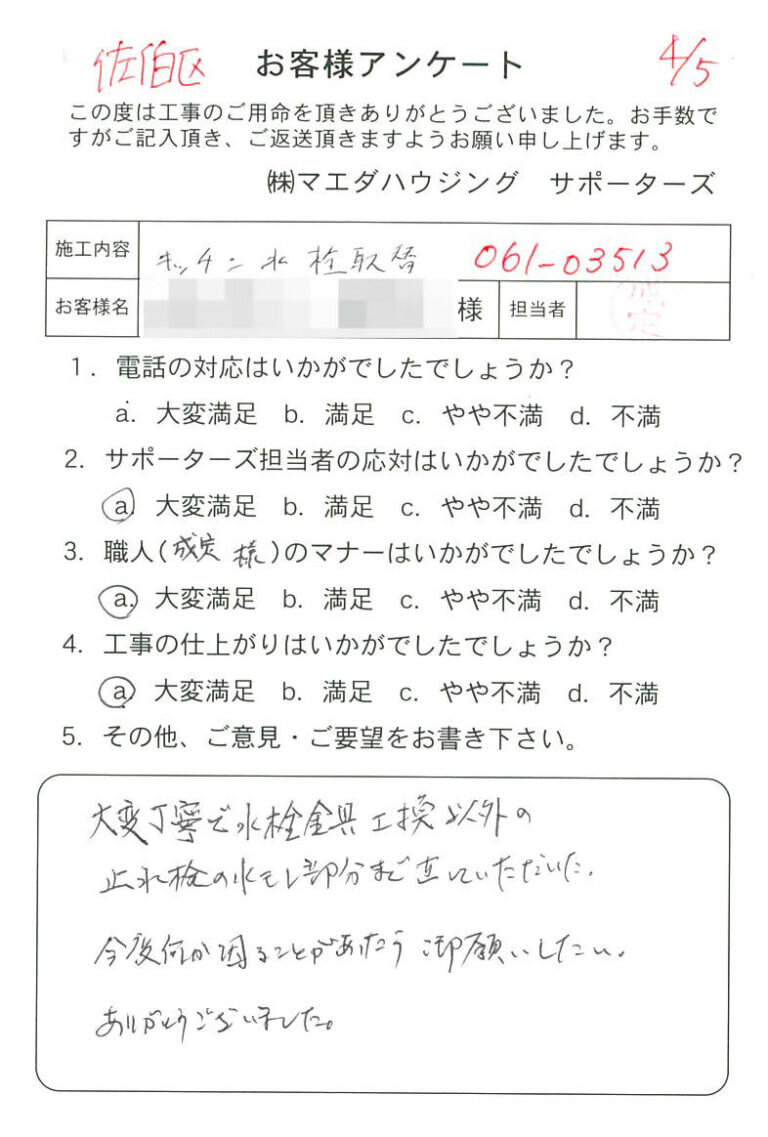 佐伯区 お客様アンケート 4/5
この度は工事のご用命を頂きありがとうございました。お手数で
すがご記入頂き、ご返送頂きますようお願い申し上げます。
㈱マエダハウジング サポーターズ
施工内容 キッチン水栓取替 061-03513
お客様名 様 担当者 成定
1. 電話の対応はいかがでしたでしょうか？
a. 大変満足 b. 満足 c. やや不満 d. 不満
2. サポーターズ担当者の応対はいかがでしたでしょうか？
a. 大変満足 b. 満足 c. やや不満 d. 不満
3. 職人(成定 様)のマナーはいかがでしたでしょうか？
a. 大変満足 b. 満足 c. やや不満 d. 不満
4. 工事の仕上がりはいかがでしたでしょうか？
a. 大変満足 b. 満足 c. やや不満 d. 不満
5. その他、ご意見・ご要望をお書き下さい。
大変丁寧で水栓金具工換以外の
止水栓の水モレ部分まで直していただいた。
今後何か困ることがあったら御願いしたい。
ありがとうございました。